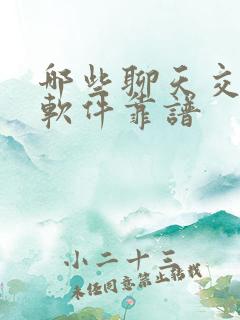 哪些聊天交
軟件靠譜
小二十三
未经同意禁止转载